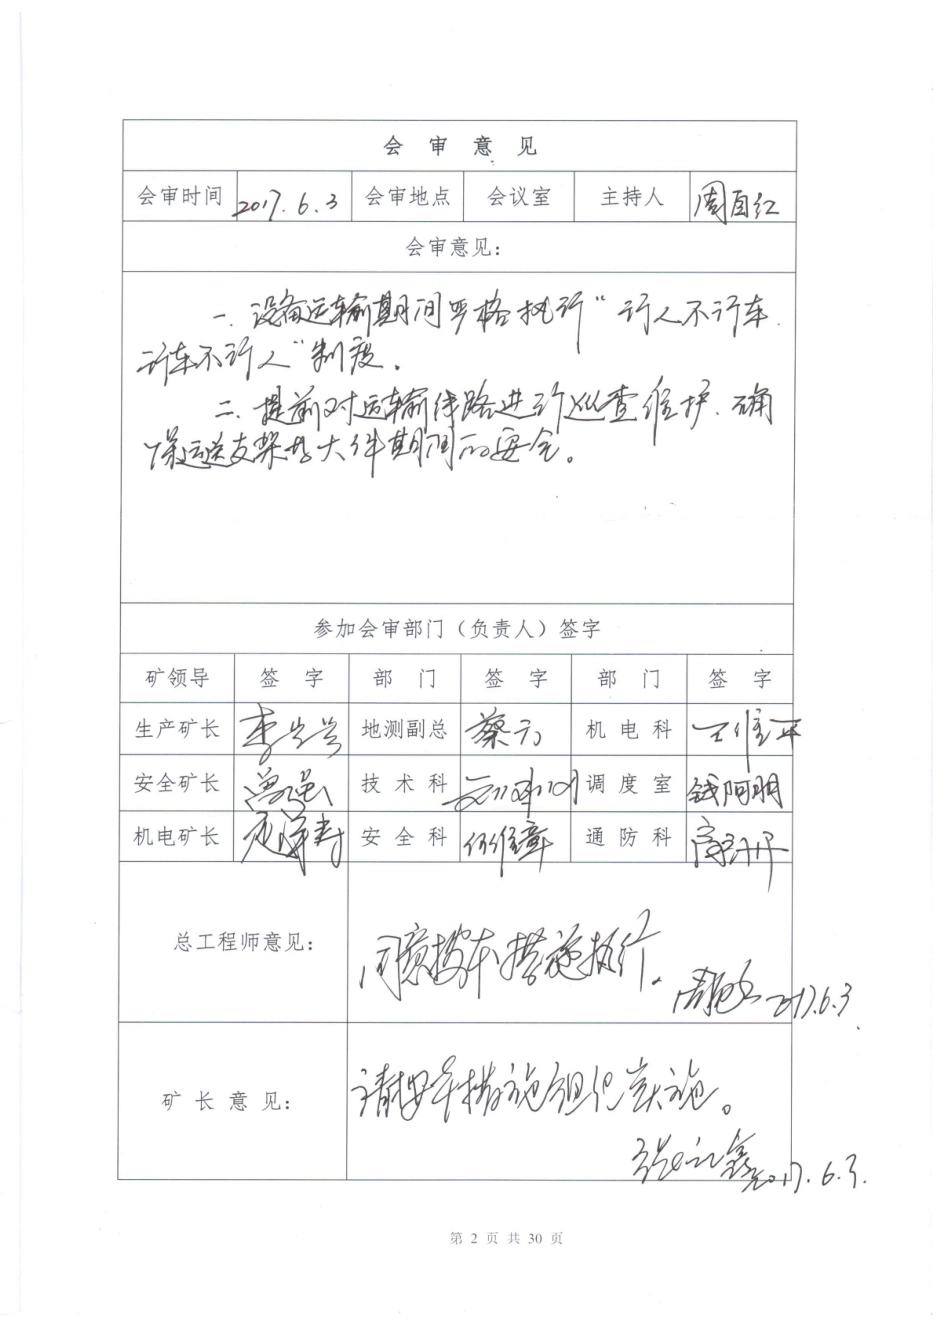 会 审 意 见
会审时间 2017.6.3 会审地点 会议室 主持人 周自红
会审意见：
一.设备运输期间严格执行“行人不行车.
行车不行人”制度。
二.提前对运输线路进行巡查维护.确
保运送支架等大件期间的安全。
参加会审部门（负责人）签字
矿领导 签 字 部 门 签 字 部 门 签 字
生产矿长 地测副总 蔡方 机 电 科 王维平
安全矿长 技 术 科 调 度 室 钱阿朋
机电矿长 安 全 科 任维章 通 防 科
总工程师意见：
同意按本措施执行.
2017.6.3
矿 长 意 见：
请按本措施组织实施。
2017.6.3.
第 2 页 共 30 页